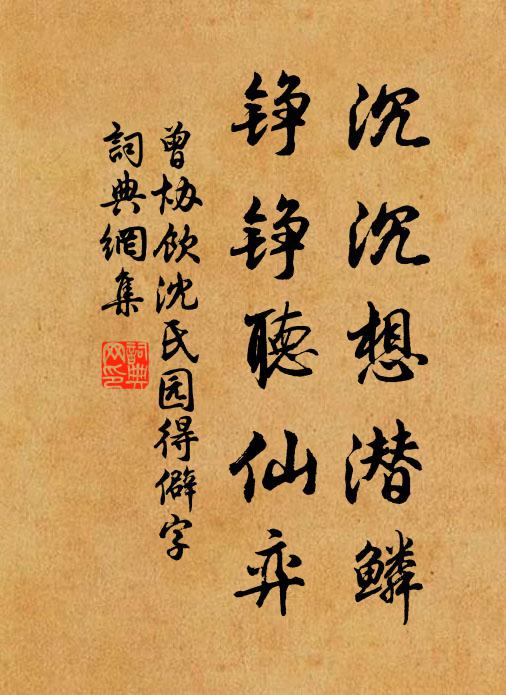 沉沉想潜鳞
铮铮聽仙弈
曾协飲沈氏园得僻字
詞典網集
詞典網印